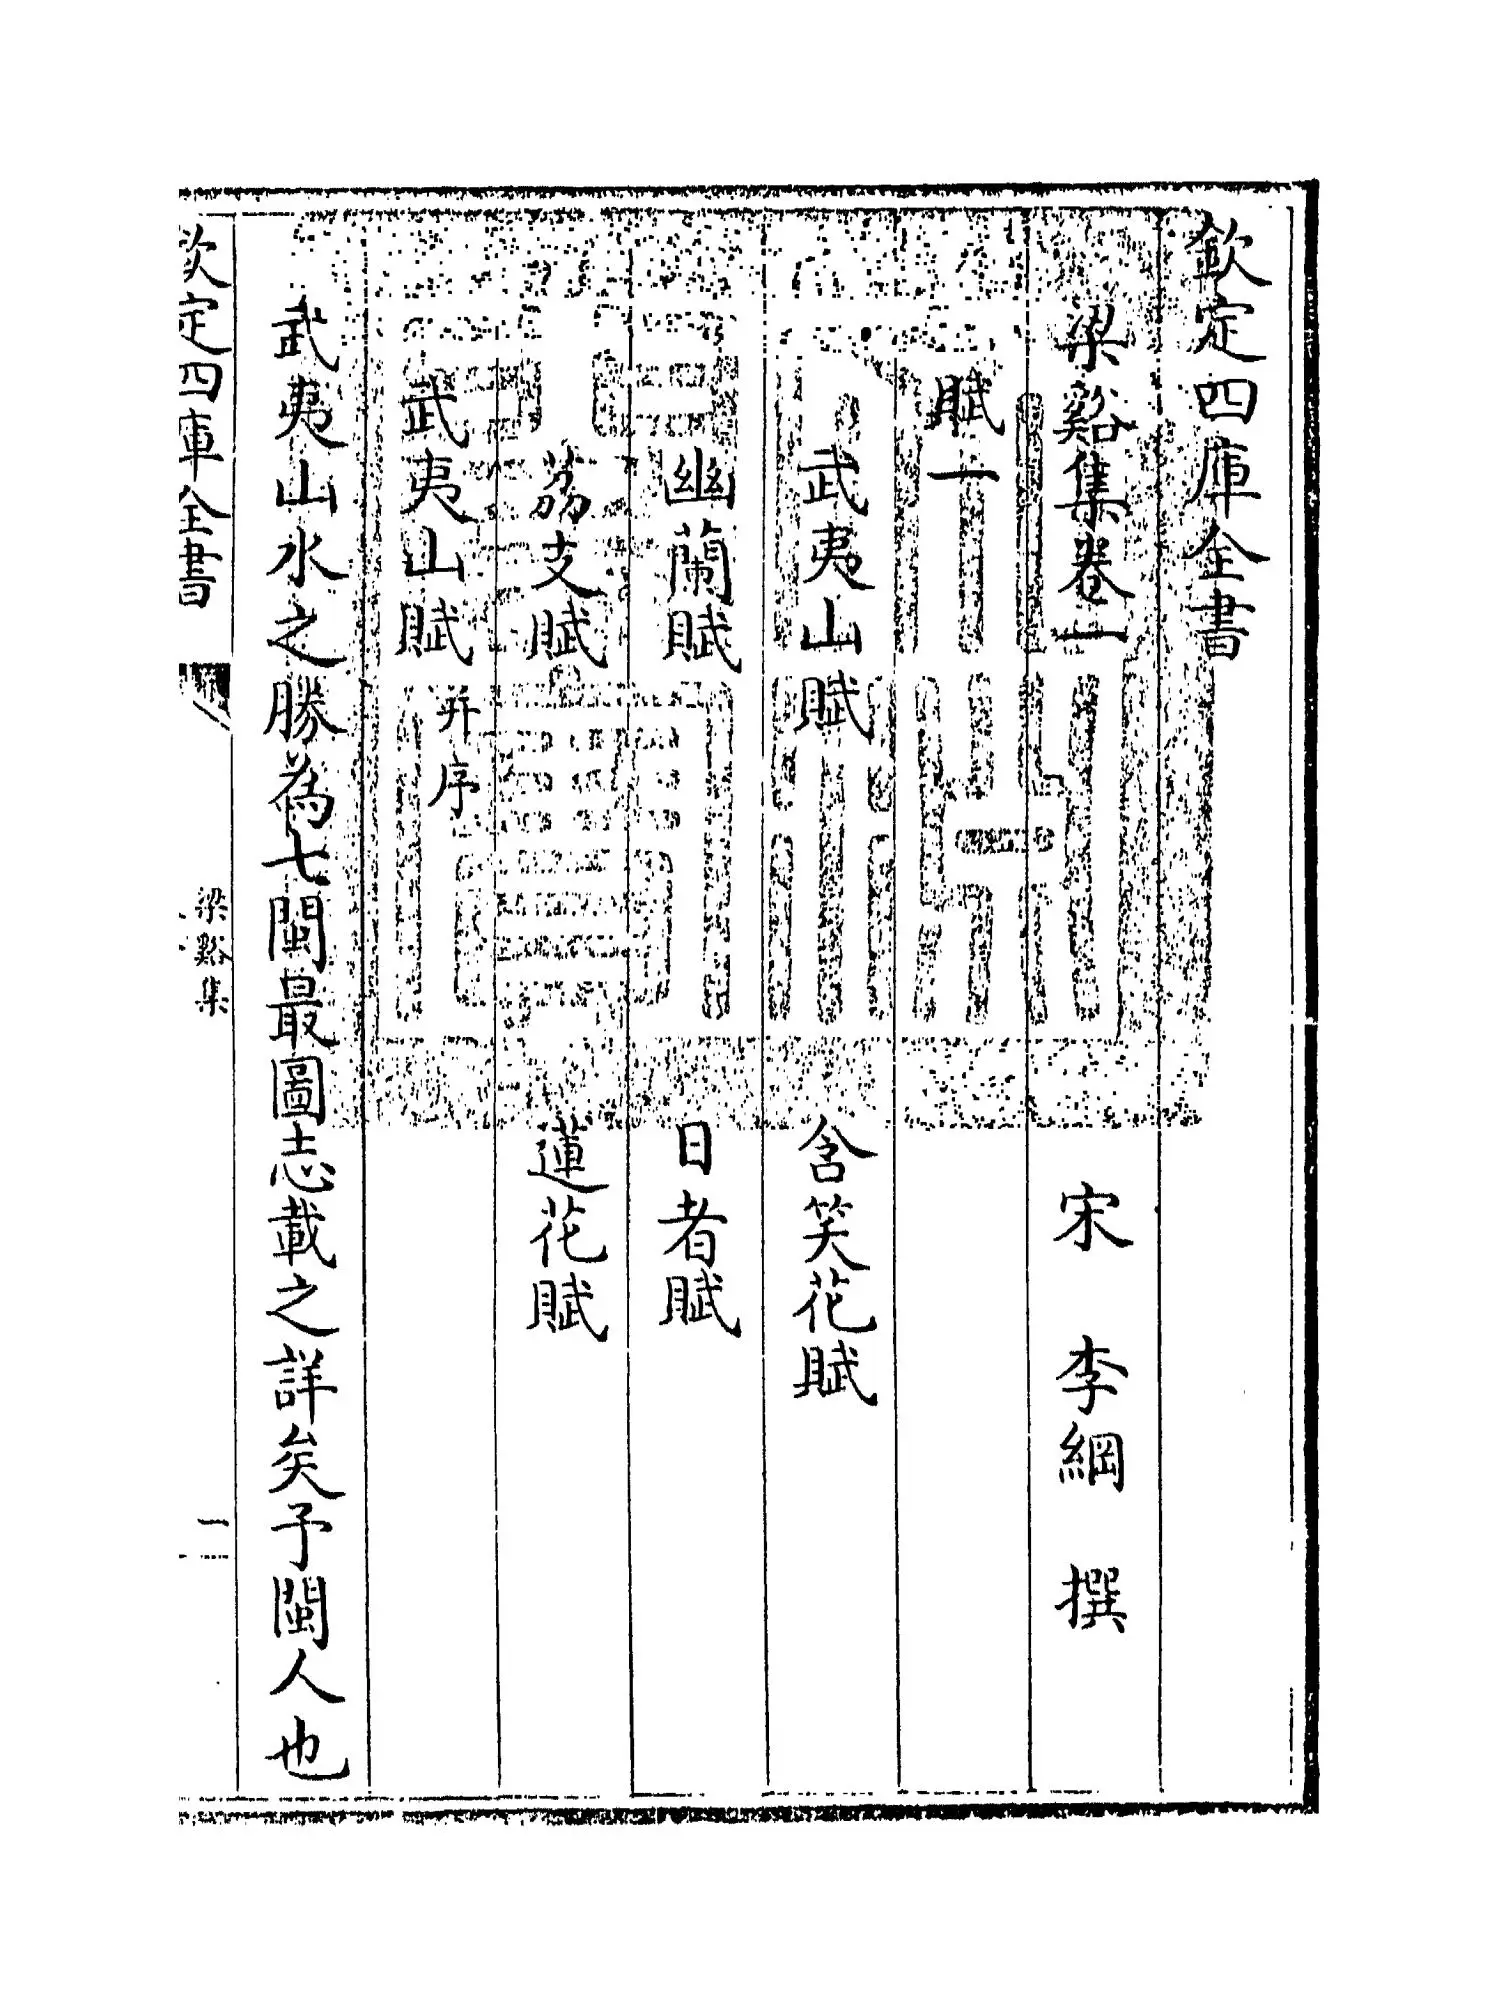 欽定四庫全書
梁谿集卷一
宋 李綱 撰
賦一
武夷山賦 含笑花賦
幽蘭賦 日者賦
荔支賦 蓮花賦
武夷山賦 并序
武夷山水之勝為七閩最圖志載之詳矣予閩人也
欽定四庫全書
梁谿集
一